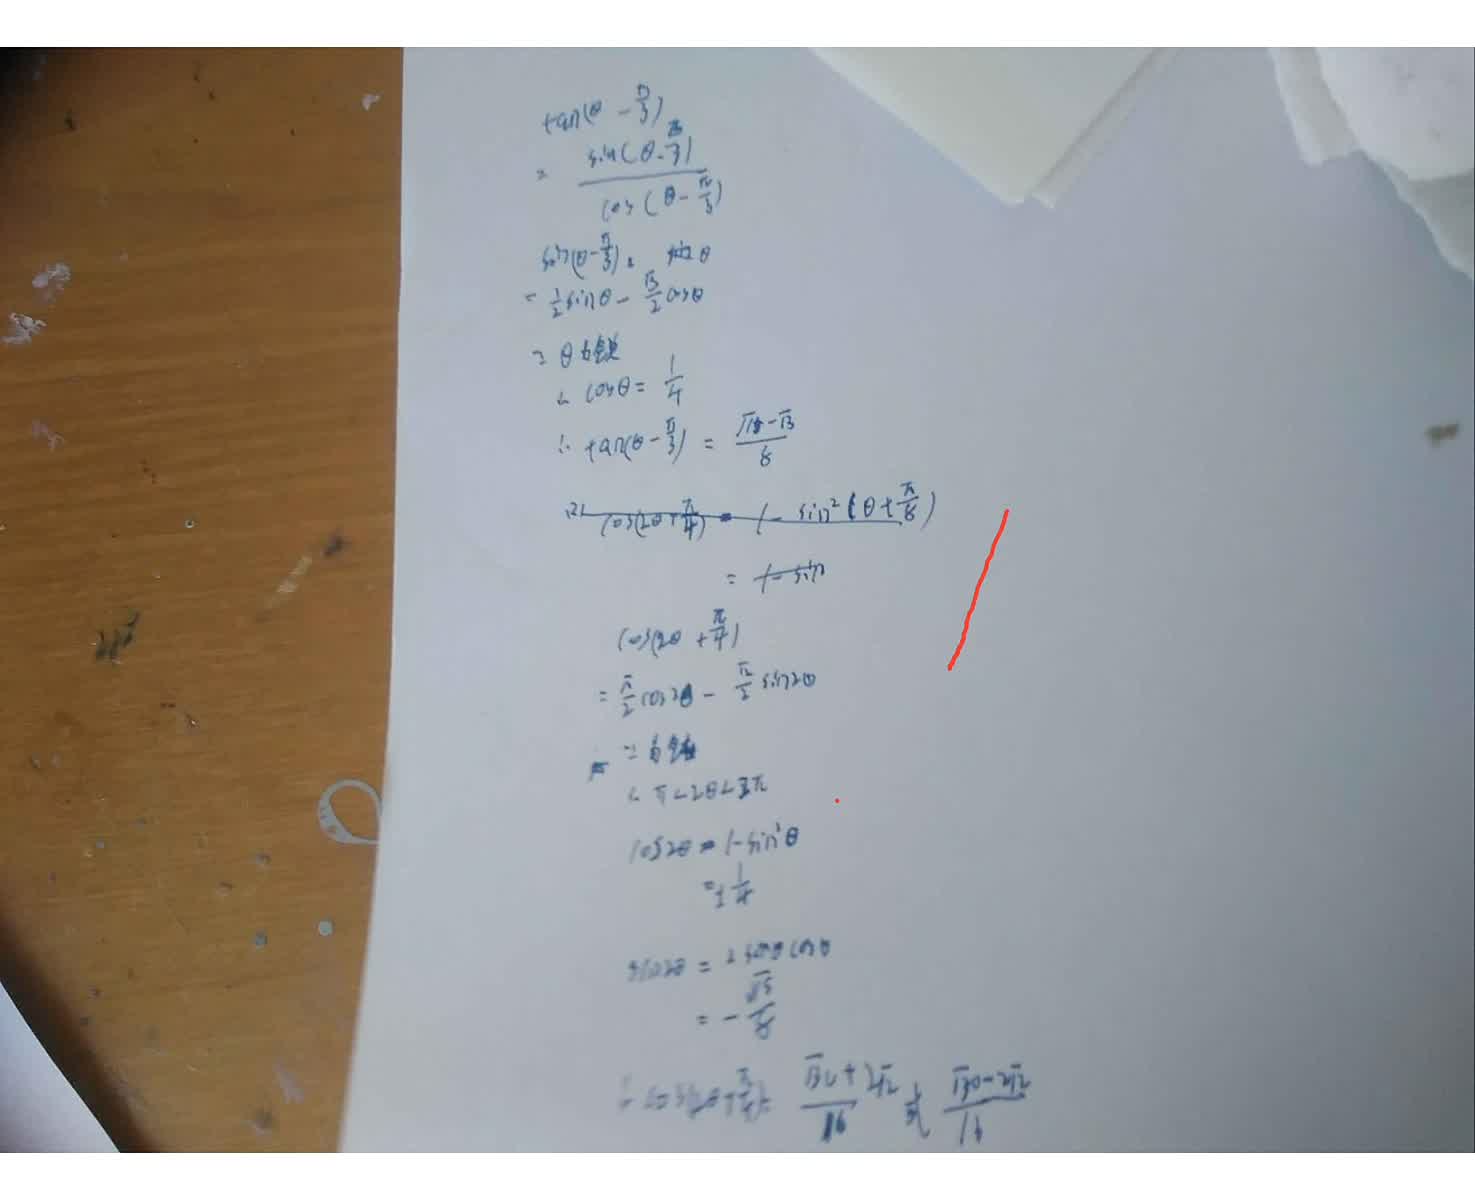 tan(θ - π/3)
= sin(θ - π/3) / cos(θ - π/3)
sin(θ - π/3) sin2θ
= 1/2 sinθ - √3/2 cosθ
∵ θ为锐
∴ cosθ = 1/4
∴ tan(θ - π/3) = (√15 - √3)/8
(2) cos(2θ + π/4) = 1 - sin²(θ + π/8)
= 1 - sin
cos(2θ + π/4)
= √2/2 cos2θ - √2/2 sin2θ
∵ 为
∴ π < 2θ < π
cos2θ = 1 - sin²θ
= ± 1/4
sin2θ = 2 sinθ cosθ
= - √15/8
∴ cos(2θ + π/4) = (√30 + 2√2)/16 或 (√30 - 2√2)/16